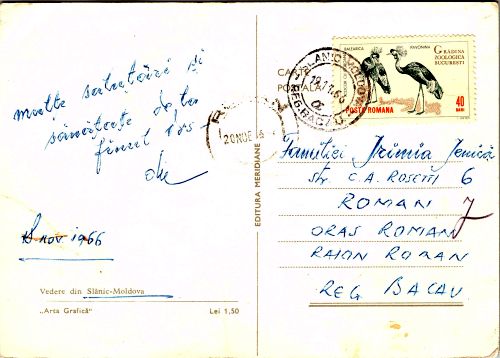 multe salutări și
sănătate dela
finul
8 nov 1966
Vedere din Slănic-Moldova
„Arta Grafică”
Lei 1,50
EDITURA MERIDIANE
BALEARICA
PAVONINA
GRĂDINA
ZOOLOGICA
BUCUREȘTI
40
BANI
POSTA ROMANA
SLANIC MOLDOVA
REG BACAU
Familiei Irimia
str C.A. ROSETTI 6
ROMAN 7
ORAS ROMAN
RAION ROMAN
REG BACAU